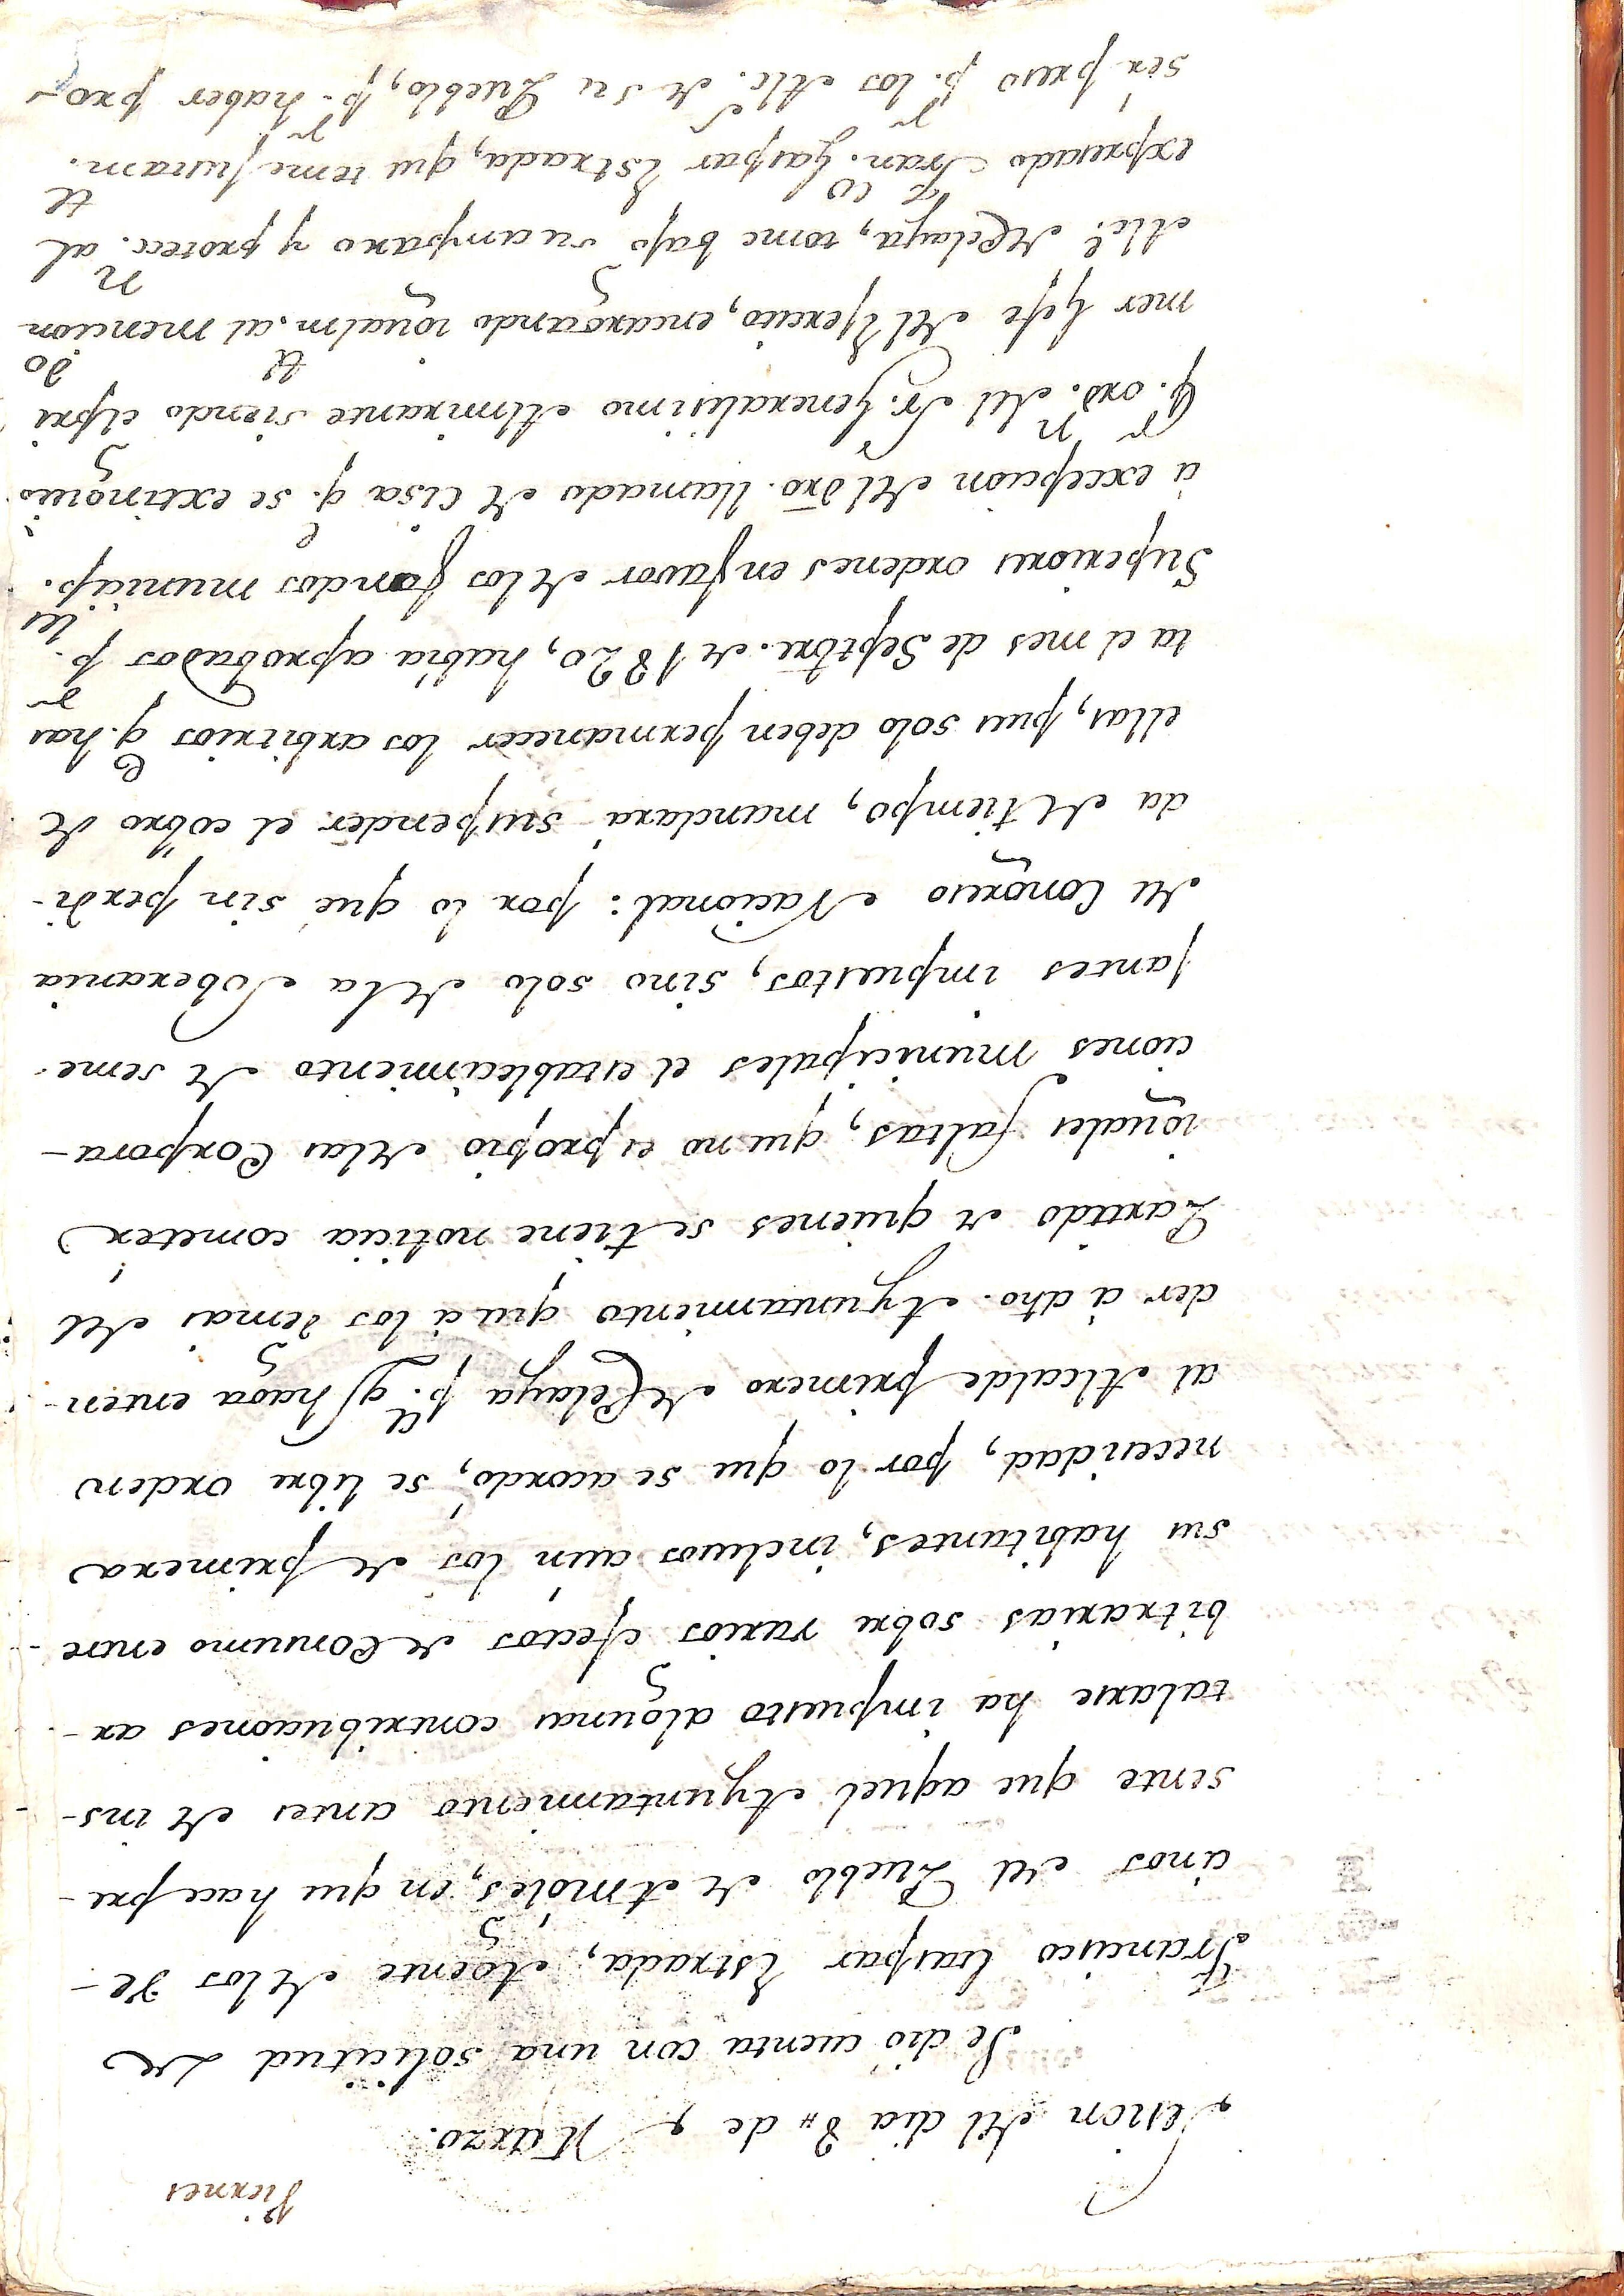 Viernes
Sesion del dia 8,, de Marzo.
Se dió cuenta con una solicitud de
Francisco Gaspar Estrada, Agente de los Ve-
cinos del Pueblo de Amoles, en que hace pre-
sente que aquel Ayuntamiento antes de ins-
talarse ha impuesto algunas contribuciones ar-
bitrarias sobre varios efectos de Consumo entre
sus habitantes, inclusos aún los de primera
necesidad, por lo que se acordó, se libre orden
al Alcalde primero de Celaya p.ª q.e haga enten-
der á dho. Ayuntamiento que á los demas del
Partido de quienes se tiene noticia cometer
iguales faltas, que no es propio de las Corpora-
ciones municipales el establecimiento de seme-
jantes impuestos, sino solo de la Soberania
del Congreso Nacional: por lo que sin perdi-
da de tiempo, mandará suspender el cobro de
ellas, pues solo deben permanecer los arbitrios q.e has
ta el mes de Septbre. de 1820, habia aprobados p.r
Superiores ordenes en favor de los fondos municip.les
á excepcion del dro. llamado de Cisa q.e se extinguió
P.r ord.n del Sr. Generalisimo Almirante siendo el pri
mer Gefe del Egercito, encargando igualm.te al mencion.do
Alc.e de Celaya, tome bajo su amparo y protec.n al
expresado Fran.co Gaspar Estrada, que teme justam.te
ser preso p.r los Alc.s de su Pueblo, p.r haber pro-